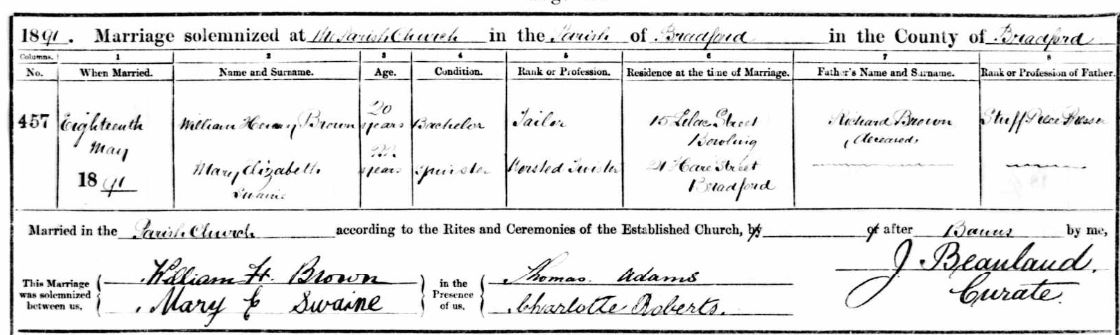 1891. Marriage solemnized at the Parish Church in the Parish of Bradford in the County of Bradford
Columns. 1 2 3 4 5 6 7 8
No. When Married. Name and Surname. Age. Condition. Rank or Profession. Residence at the time of Marriage. Father's Name and Surname. Rank or Profession of Father.
457 Eighteenth May 1891
William Henry Brown 20 years Bachelor Tailor 15 Lilac Street Bowling Richard Brown (deceased) Stuff Piece Presser
Mary Elizabeth Swaine 22 years Spinster Worsted Twister 21 Hare Street Bradford
Married in the Parish Church according to the Rites and Ceremonies of the Established Church, by or after Banns by me,
This Marriage was solemnized between us,
William H. Brown
Mary E Swaine
in the Presence of us,
Thomas Adams
Charlotte Roberts.
J. Beanland.
Curate.